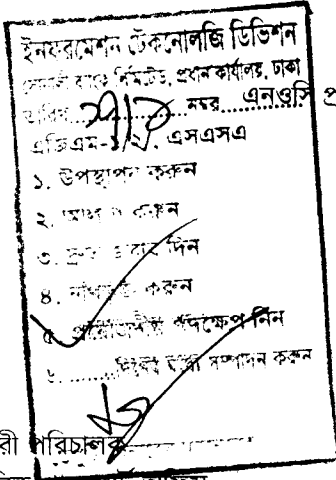 ইনফরমেশন টেকনোলজি ডিভিশন
সোনালী ব্যাংক লিমিটেড, প্রধান কার্যালয়, ঢাকা
তারিখ..............নম্বর..............
এনওসি প্র
এজিএম-১/২, এসএসএ
১. উপস্থাপন করুন
২. আলাপ করুন
৩. দ্রুত জবাব দিন
৪. নথিভুক্ত করুন
৫. প্রয়োজনীয় পদক্ষেপ নিন
৬. .........দিনের মধ্যে সম্পাদন করুন
রী পরিচালক